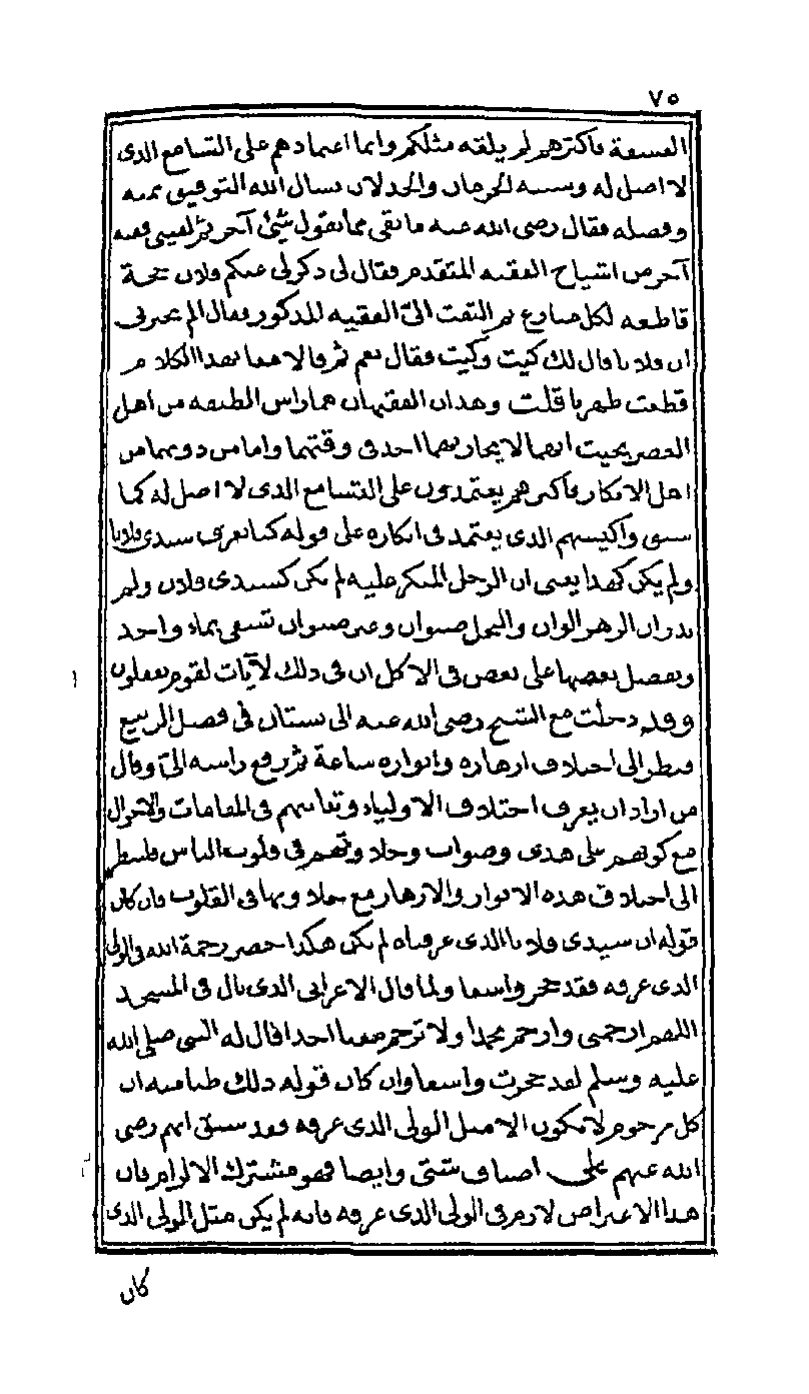 ٧٥
الفسقة فأكثرهم لم يلقه مثلكم وانما اعتمادهم على التسامع الذى
لا اصل له وسببه الحرمان والخذلان نسأل الله التوفيق بمنه
وفضله فقال رضى الله عنه ما بقى مما نقول شئ آخر ثم لقينى فقيه
آخر من اشياخ الفقيه المتقدم فقال لى ذكر لى عنكم فلان حجة
قاطعة لكل منازع ثم التفت الىّ الفقيه المذكور فقال ألم يخبرنى
ان فلانا قال لك كيت وكيت فقال نعم ثم قالا معا بهذا الكلام
قطعت ظهرنا قلت وهذان الفقيهان هما رأس الطبقة من اهل
العصر بحيث انهما لا يجاريهما احد فى وقتهما واما من دونهما من
اهل الانكار فأكثرهم يعتمدون على التسامع الذى لا اصل له كما
سبق واكيسهم الذى يعتمد فى انكاره على قوله كنا نعرف سيدى فلانا
ولم يكن كهذا يعنى ان الرجل المنكر عليه لم يكن كسيدى فلان ولم
يدر ان الزهر الوان والنخل صنوان وغير صنوان تسقى بماء واحد
ونفضل بعضها على بعض فى الاكل ان فى ذلك لآيات لقوم يعقلون
وقد دخلت مع الشيخ رضى الله عنه الى بستان فى فصل الربيع
فنظر الى اختلاف ازهاره وانواره ساعة ثم رفع راسه الىّ وقال
من اراد ان يعرف اختلاف الاولياء وتباينهم فى المقامات والاحوال
مع كونهم على هدى وصواب وحلاوتهم فى قلوب الناس فلينظر
الى اختلاف هذه الانوار والازهار مع حلاوتها فى القلوب فان كان
قوله ان سيدى فلانا الذى عرفناه لم يكن هكذا حصر رحمة الله فى الولى
الذى عرفه فقد حجر واسعا ولما قال الاعرابى الذى بال فى المسجد
اللهم ارحمنى وارحم محمدا ولا ترحم معنا احدا قال له النبى صلى الله
عليه وسلم لقد حجرت واسعا وان كان قوله ذلك ظنا منه ان
كل مرحوم لا يكون الا مثل الولى الذى عرفه فقد سبق انهم رضى
الله عنهم على اصناف شتى وايضا فهو مشترك الالزام فان
هذا الاعتراض لازم فى الولى الذى عرفه فانه لم يكن مثل الولى الذى
كان